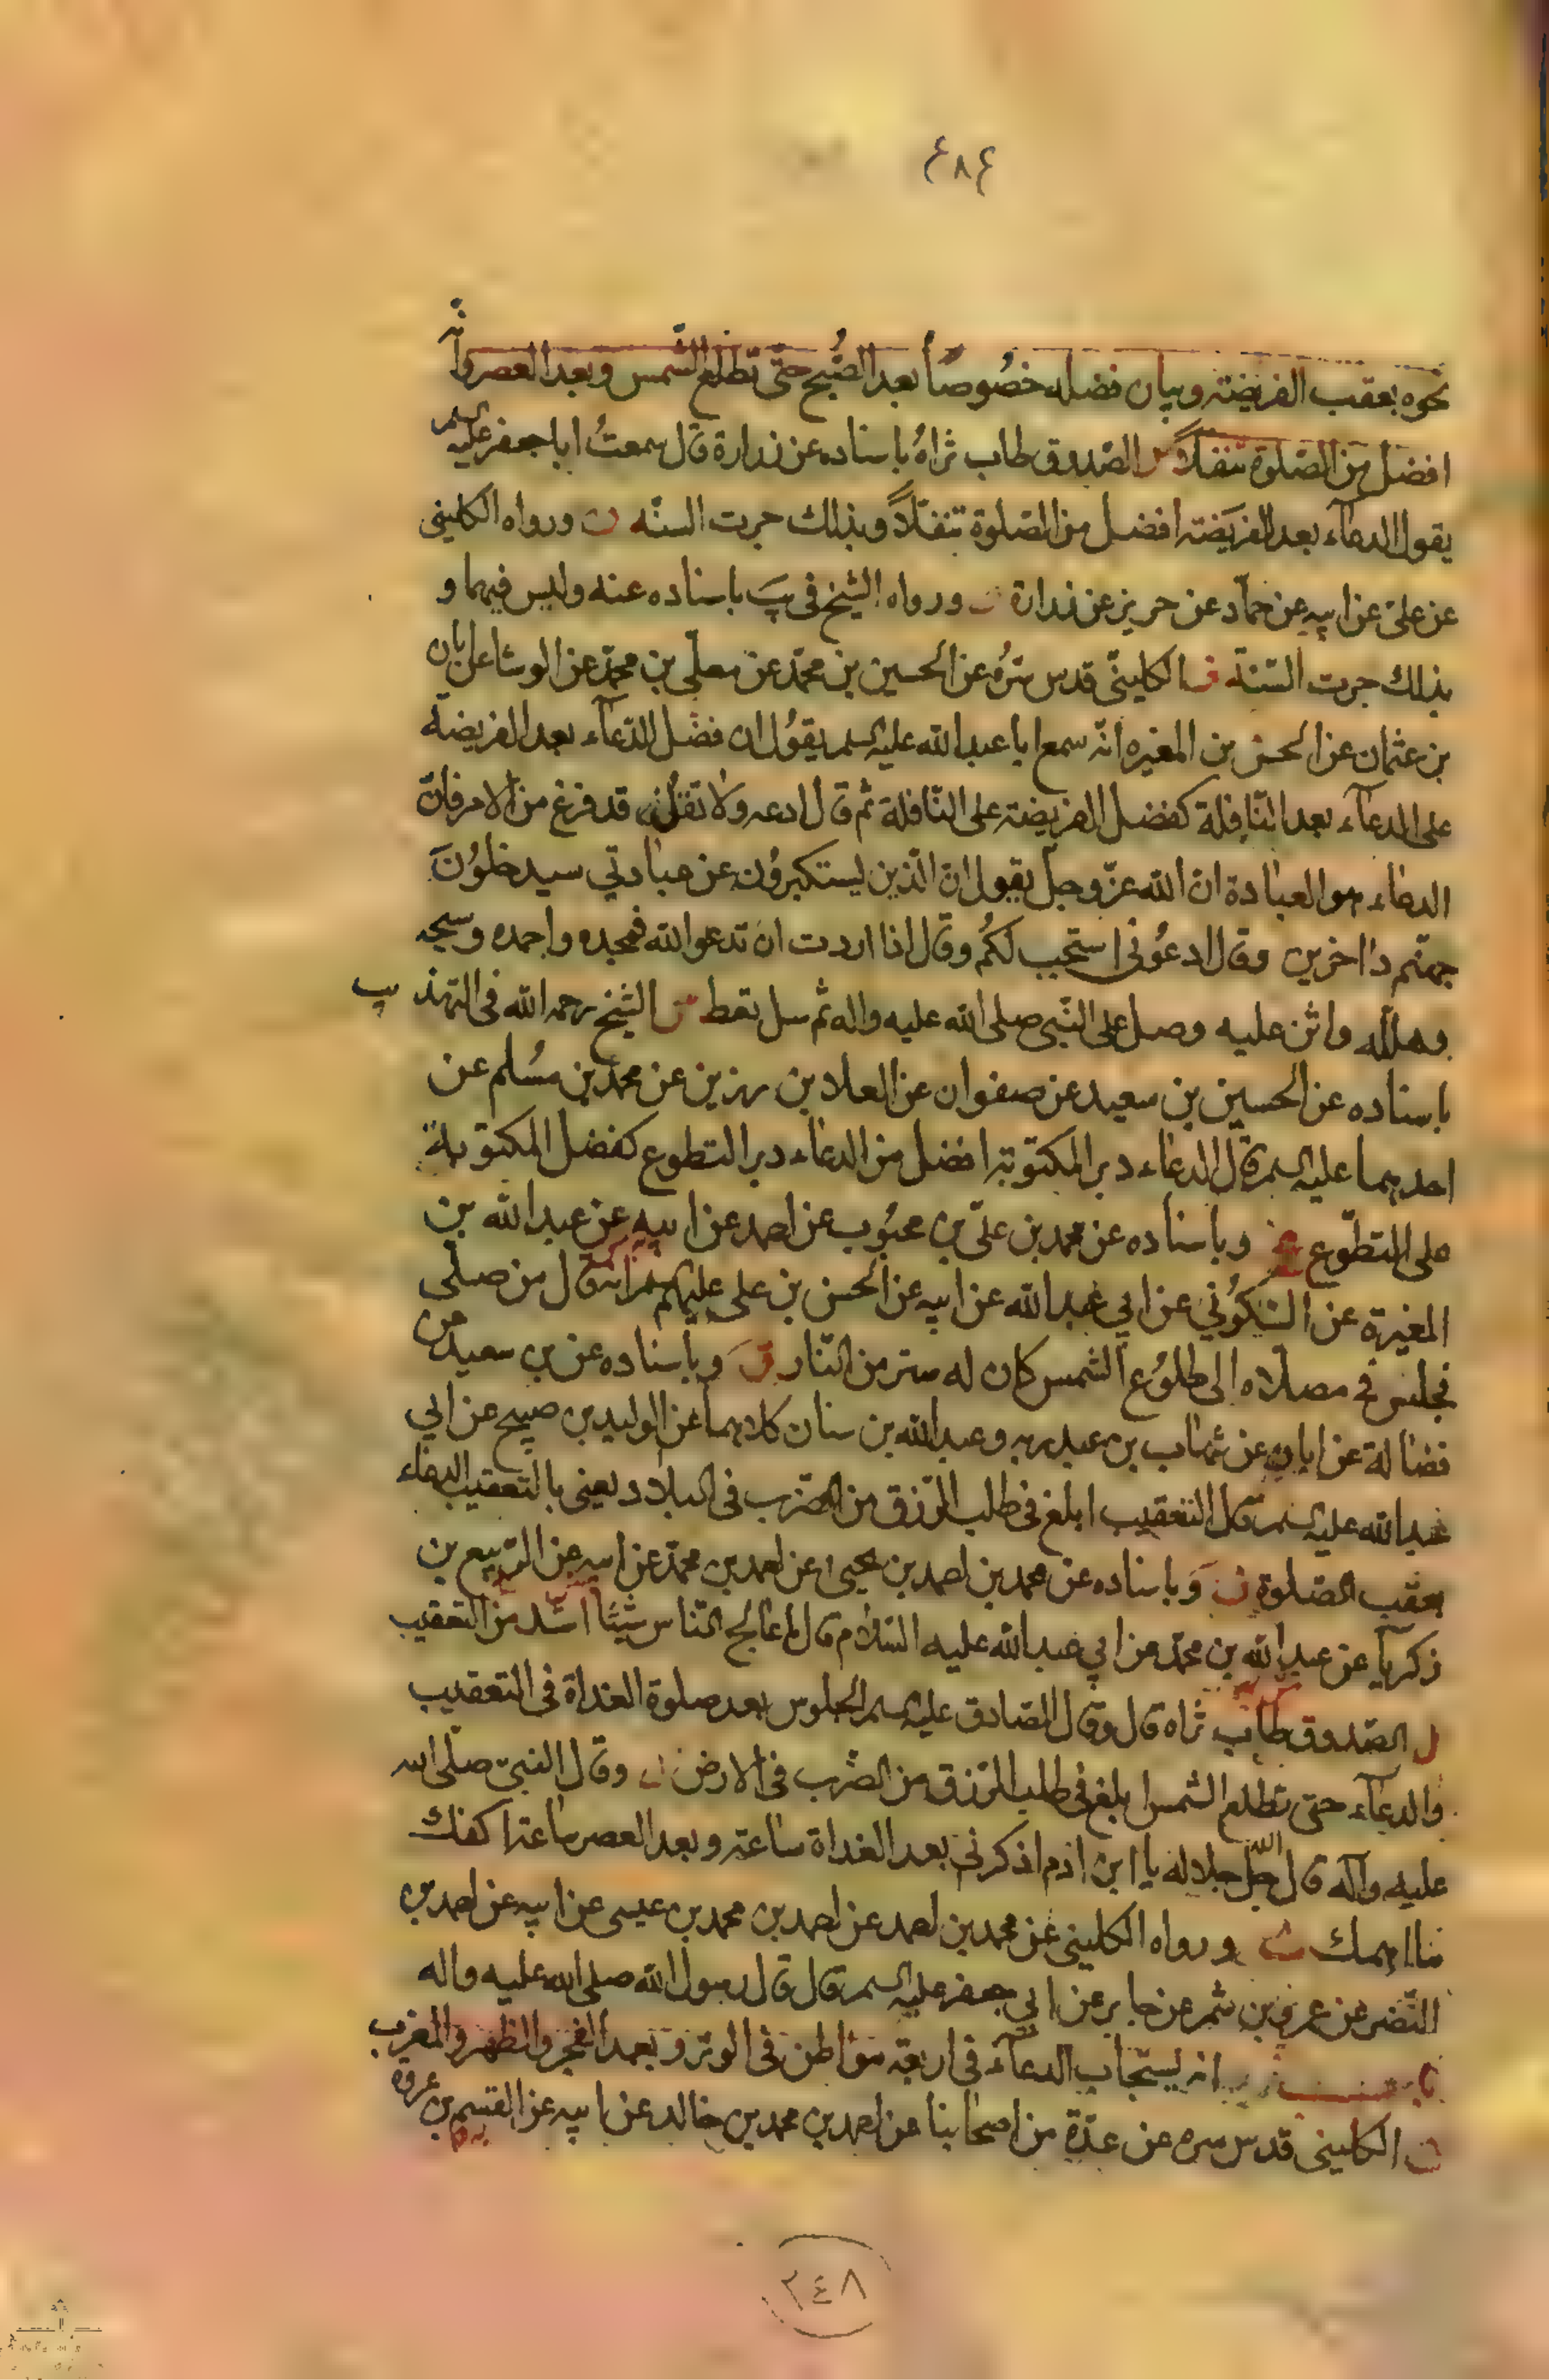 ٤٨٤
نحوه بعقب الفريضة وبيان فضله خصُوصًا بعد الصُّبح حتّى تطلع الشّمس وبعد العصر وانّه
افضل من الصّلوة تنفلاً الصّدوق طاب ثراهُ باسناده عن زرارة قال سمعتُ ابا جعفر عليه السلم
يقول الدعآء بعد الفريَضة افضل من الصّلوة تنفّلاً وبذلك جرت السنّه ورواه الكليني
عن علىّ عن ابيه عن حمّاد عن حريز عن زرارة ورواه الشيخ فى يبَ باسناده عنه وليس فيهما و
بذلك جرت السّنة الكلينىّ قدس سّرُه عن الحسين بن محمّد عن معلّى بن محمّد عن الوشا عن ابان
بن عثمان عن الحسن بن المغيره انّه سمع ابا عبد الله عليه السلم يقوُل ان فضل الدّعآء بعد الفريضة
على الدعآء بعد النّافلة كفضل الفريضة على النّافلة ثم قال ادعه ولا تقل قد فرغ من الامر فانّ
الدعاء هو العبادة ان الله عزّ وجلّ يقول انّ الّذين يستكبروُن عن عبادتي سيدخلوُنَ
جهنّم داخرين وقال ادعُونى استجب لكُم وقال اذا اردت ان تدعو الله فمجده واحمده وسبحه
وهلّله واثن عليه وصل على النّبى صلى الله عليه واله ثم سل تعط الشيخ رحمه الله فى التهذيب
باسناده عن الحسين بن سعيد عن صفوان عن العلاء بن رزين عن محمد بن مسُلم عن
احدهما عليه السلم قال الدعاء دبر المكتوبة افضل من الدعاء دبر التطوع كفضل المكتوبة
على التطوّع وباسناده عن محمد بن علىّ بن محبُوب عن احمد عن ابيه عن عبد الله بن
المغيرة عن السّكوُني عن ابي عبد الله عن ابيه عن الحسن بن على عليهم السلم انه قال من صلّى
فجلس فى مصلّاه الى طلوُع الشمس كان له ستر من النّار وباسناده عن بن سعيد عن
فضالة عن ابان عن شهاب بن عبد ربه وعبد الله بن سنان كلاهما عن الوليد بن صبيح عن ابي
عبد الله عليه السلم قال التعقيب ابلغ فى طلب الرّزق من الضّرب فى البلاد يعنى بالتعقيب الدعاء
بعقب الصّلوة وَباسناده عن محمد بن احمد بن يحيى عن احمد بن محمّد عن ابيه عن الرّبيع بن
زكريآ عن عبد الله بن محمّد عن ابي عبد الله عليه السّلام قال ما عالج النّاس شيئًا اشد من التعقيب
ل الصّدوق طاب ثراه قال وقال الصّادق عليه السلم الجلوس بعد صلوة الغداة فى التعقيب
والدعآء حتى تطلع الشمس ابلغ فى طلب الرّزق من الضّرب فى الارض وقال النبىّ صلّى الله
عليه وآله قال الله جل جلاله يا ابن ادم اذكرنى بعد الغداة ساعة وبعد العصر ساعة اكفك
ما اهمك ورواه الكليني عن محمد بن احمد عن احمد بن محمد بن عيسى عن ابيه عن احمد بن
النّضر عن عمرو بن شمر عن جابر عن ابي جعفر عليه السلم قال قال رسول الله صلى الله عليه واله
باب انه يستجاب الدعآء فى اربعة مواطن فى الوتر وبعد الفجر والظهر والمغرب
الكليني قدس سره عن عدّة من اصحابنا عن احمد بن محمد بن خالد عن ابيه عن القسم بن عروة
٣٤٨